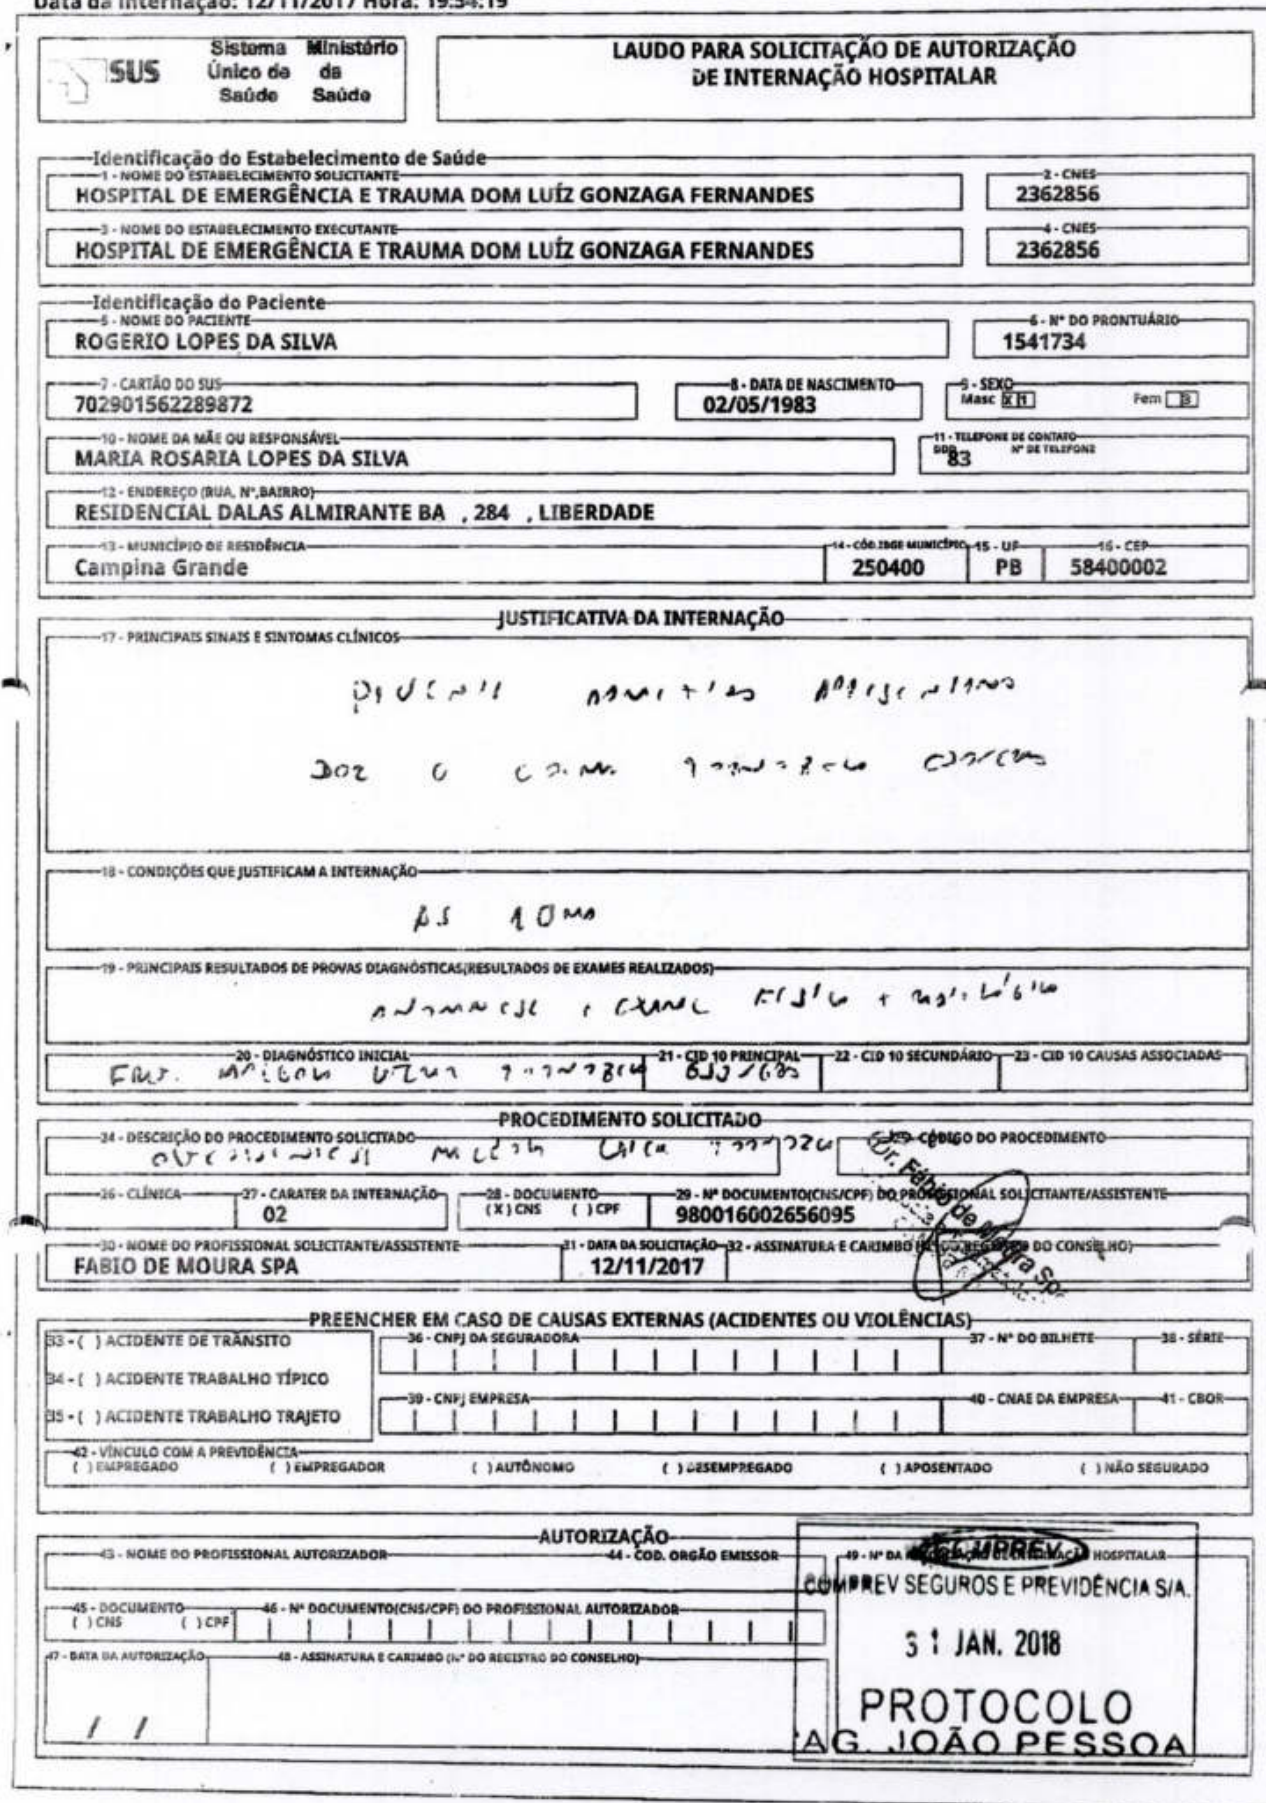 Data da Internação: 12/11/2017 Hora: 19:54:19
SUS
Sistema Único de Saúde
Ministério da Saúde
LAUDO PARA SOLICITAÇÃO DE AUTORIZAÇÃO
DE INTERNAÇÃO HOSPITALAR
Identificação do Estabelecimento de Saúde
1 - NOME DO ESTABELECIMENTO SOLICITANTE
HOSPITAL DE EMERGÊNCIA E TRAUMA DOM LUÍZ GONZAGA FERNANDES
2 - CNES
2362856
3 - NOME DO ESTABELECIMENTO EXECUTANTE
HOSPITAL DE EMERGÊNCIA E TRAUMA DOM LUÍZ GONZAGA FERNANDES
4 - CNES
2362856
Identificação do Paciente
5 - NOME DO PACIENTE
ROGERIO LOPES DA SILVA
6 - Nº DO PRONTUÁRIO
1541734
7 - CARTÃO DO SUS
702901562289872
8 - DATA DE NASCIMENTO
02/05/1983
9 - SEXO
Masc X 1 Fem 3
10 - NOME DA MÃE OU RESPONSÁVEL
MARIA ROSARIA LOPES DA SILVA
11 - TELEFONE DE CONTATO
DDD Nº DE TELEFONE
83
12 - ENDEREÇO (RUA, Nº,BAIRRO)
RESIDENCIAL DALAS ALMIRANTE BA , 284 , LIBERDADE
13 - MUNICÍPIO DE RESIDÊNCIA
Campina Grande
14 - CÓD.IBGE MUNICÍPIO
250400
15 - UF
PB
16 - CEP
58400002
JUSTIFICATIVA DA INTERNAÇÃO
17 - PRINCIPAIS SINAIS E SINTOMAS CLÍNICOS
DOR
18 - CONDIÇÕES QUE JUSTIFICAM A INTERNAÇÃO
19 - PRINCIPAIS RESULTADOS DE PROVAS DIAGNÓSTICAS(RESULTADOS DE EXAMES REALIZADOS)
ANAMNESE + EXAME FISICO + RADIOLÓGICO
20 - DIAGNÓSTICO INICIAL
21 - CID 10 PRINCIPAL
22 - CID 10 SECUNDÁRIO
23 - CID 10 CAUSAS ASSOCIADAS
PROCEDIMENTO SOLICITADO
24 - DESCRIÇÃO DO PROCEDIMENTO SOLICITADO
25 - CÓDIGO DO PROCEDIMENTO
26 - CLÍNICA
27 - CARATER DA INTERNAÇÃO
02
28 - DOCUMENTO
(X) CNS ( ) CPF
29 - Nº DOCUMENTO(CNS/CPF) DO PROFISSIONAL SOLICITANTE/ASSISTENTE
980016002656095
Dr. Fábio de Moura Spa
30 - NOME DO PROFISSIONAL SOLICITANTE/ASSISTENTE
FABIO DE MOURA SPA
31 - DATA DA SOLICITAÇÃO
12/11/2017
32 - ASSINATURA E CARIMBO (Nº DO REGISTRO DO CONSELHO)
PREENCHER EM CASO DE CAUSAS EXTERNAS (ACIDENTES OU VIOLÊNCIAS)
33 - ( ) ACIDENTE DE TRÂNSITO
34 - ( ) ACIDENTE TRABALHO TÍPICO
35 - ( ) ACIDENTE TRABALHO TRAJETO
36 - CNPJ DA SEGURADORA
37 - Nº DO BILHETE
38 - SÉRIE
39 - CNPJ EMPRESA
40 - CNAE DA EMPRESA
41 - CBOR
42 - VÍNCULO COM A PREVIDÊNCIA
( ) EMPREGADO ( ) EMPREGADOR ( ) AUTÔNOMO ( ) DESEMPREGADO ( ) APOSENTADO ( ) NÃO SEGURADO
AUTORIZAÇÃO
43 - NOME DO PROFISSIONAL AUTORIZADOR
44 - COD. ORGÃO EMISSOR
49 - Nº DA AUTORIZAÇÃO DE INTERNAÇÃO HOSPITALAR
45 - DOCUMENTO
( ) CNS ( ) CPF
46 - Nº DOCUMENTO(CNS/CPF) DO PROFISSIONAL AUTORIZADOR
47 - DATA DA AUTORIZAÇÃO
/ /
48 - ASSINATURA E CARIMBO (Nº DO REGISTRO DO CONSELHO)
COMPREV
COMPREV SEGUROS E PREVIDÊNCIA S/A.
31 JAN. 2018
PROTOCOLO
AG. JOÃO PESSOA